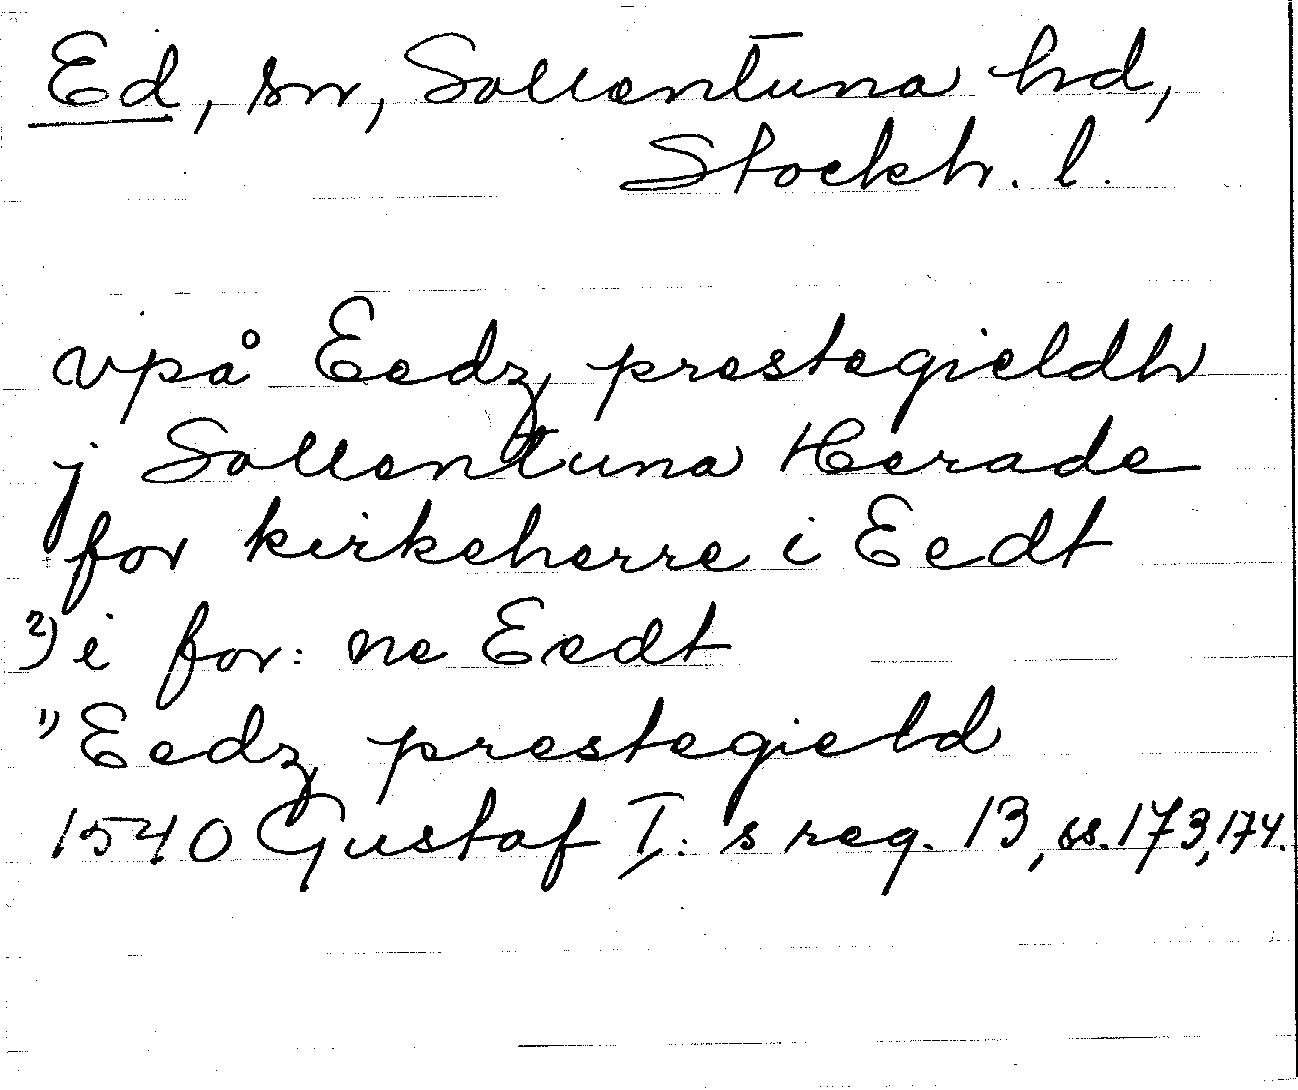 Ed, sn, Sollentuna hd,
Stockh. l.
vpå Eedz prestegieldh
j Sollentuna Herade
for kirkeherre i Eedt
2) i for: ne Eedt
1) Eedz prestegield
1540 Gustaf I: s reg. 13, ss. 173, 174.